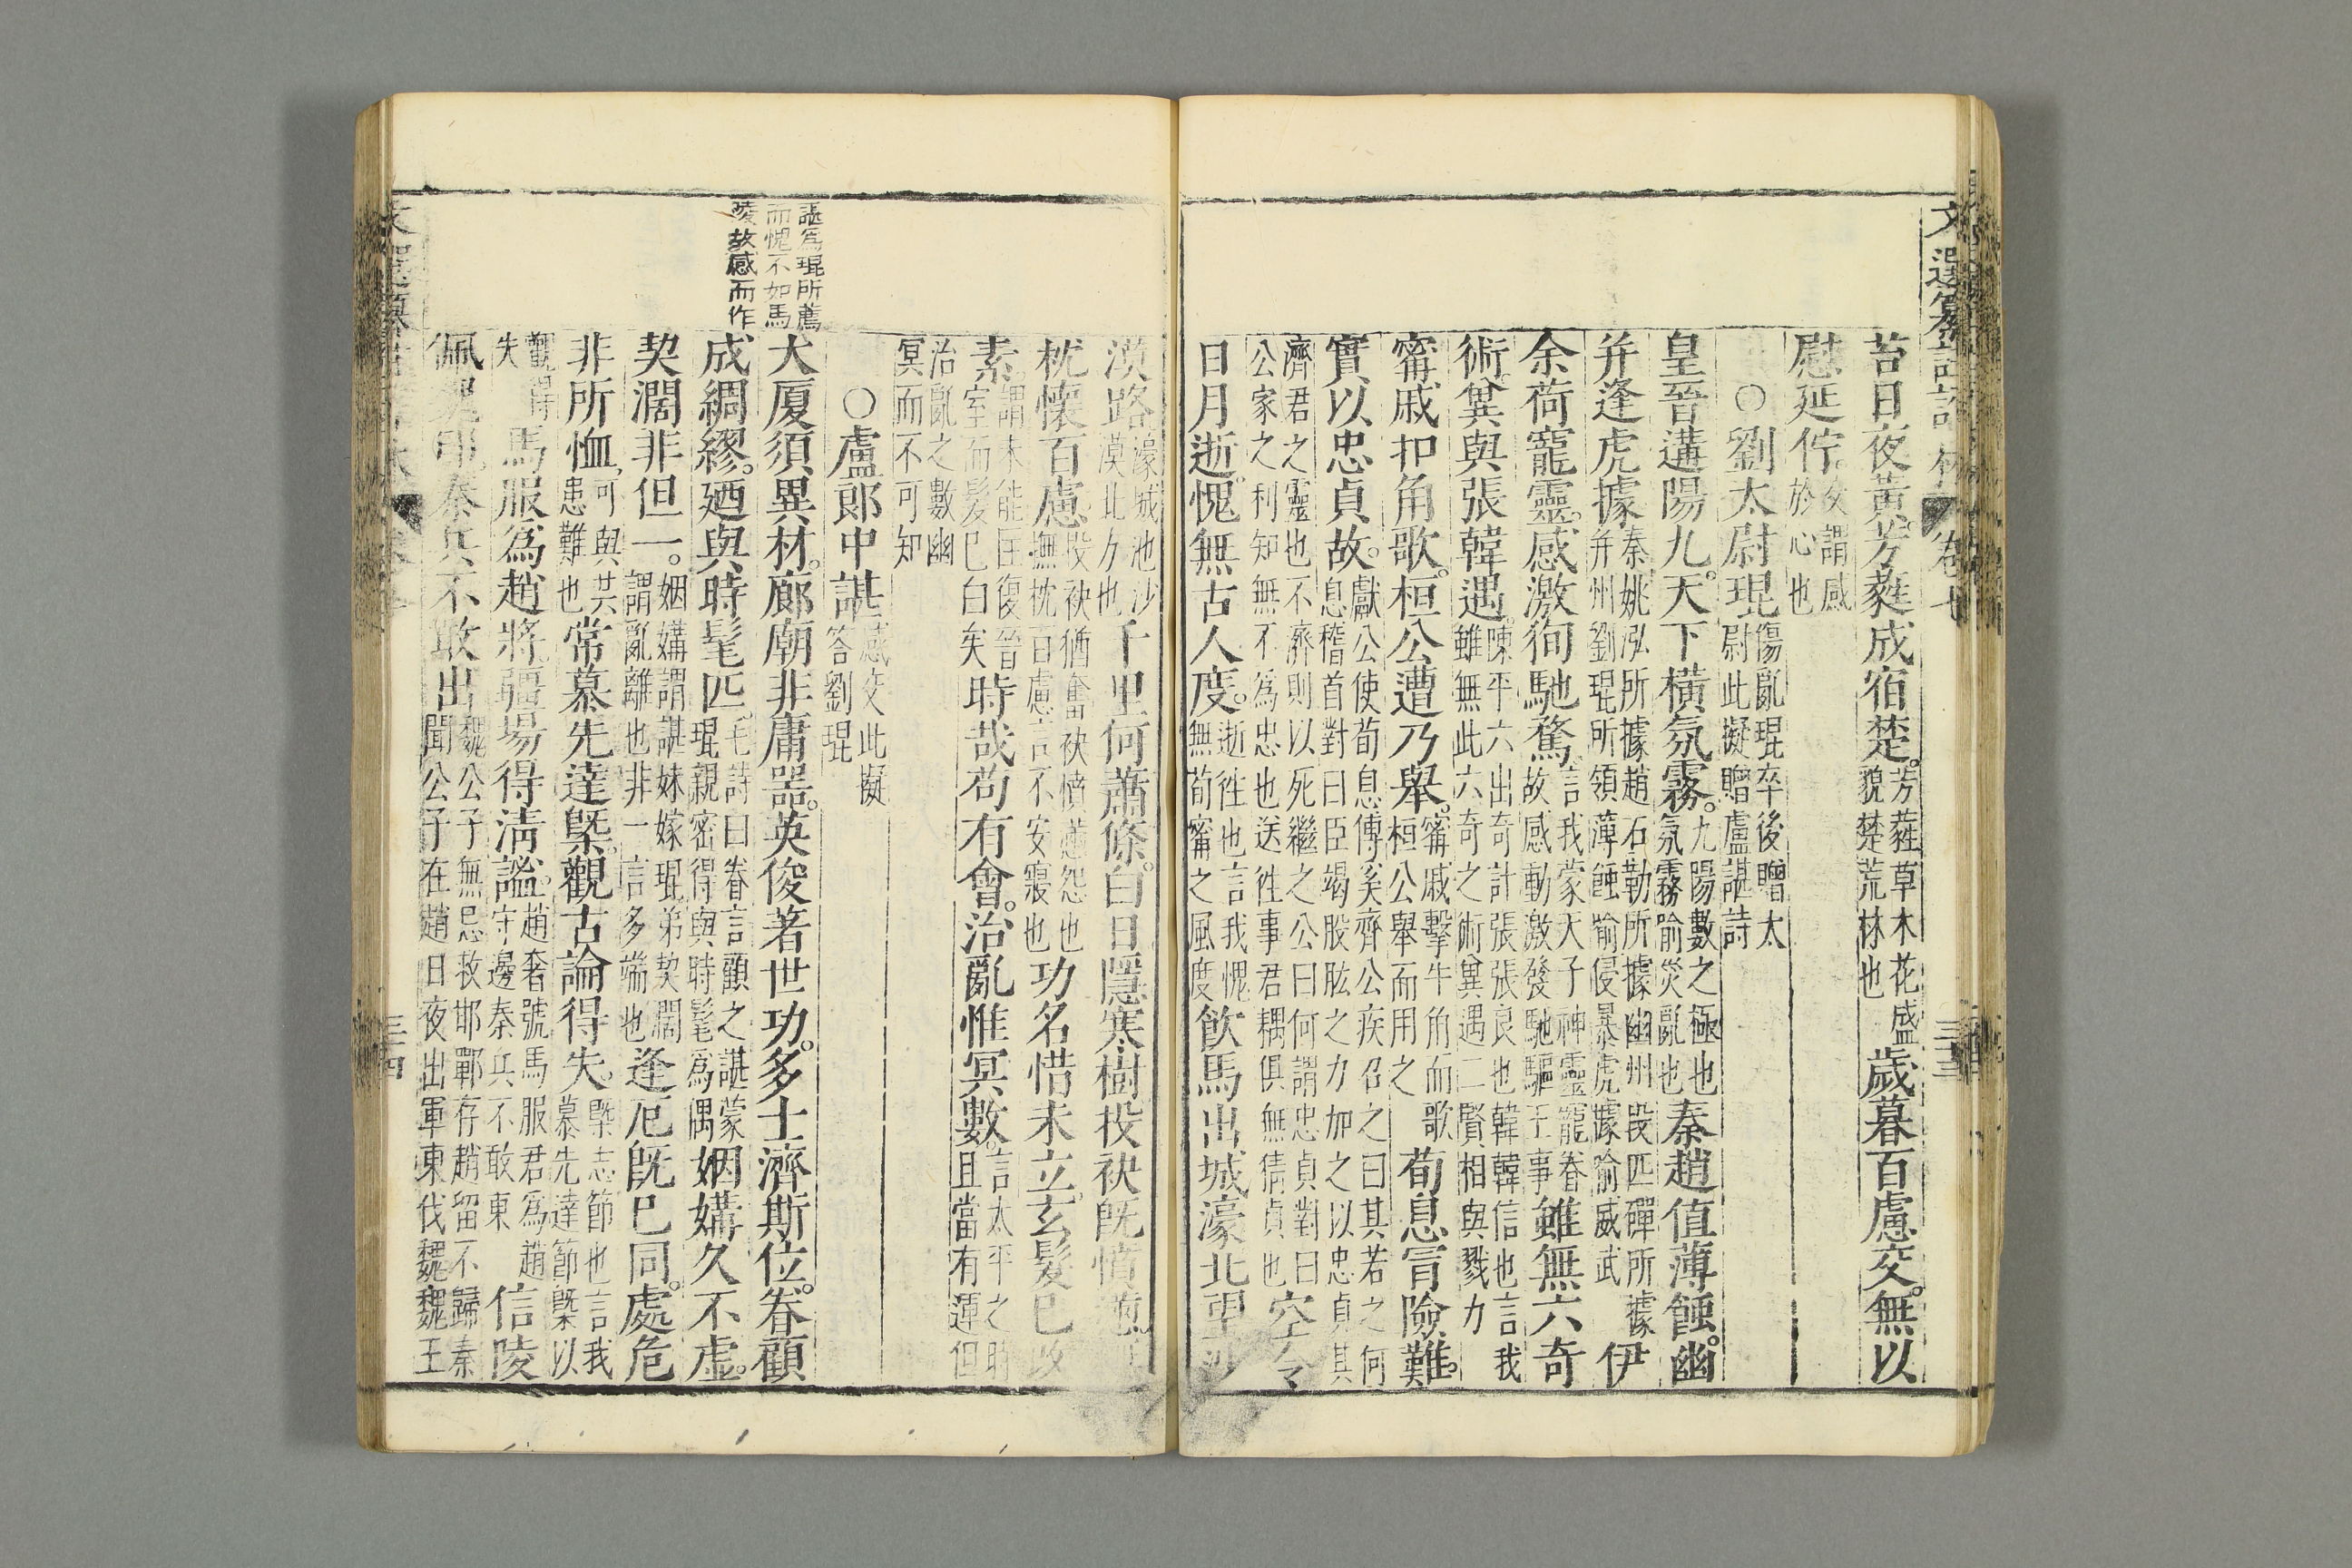 苕日夜黃芳蕤成宿楚芳蕤草木花盛貌楚荒林也歲暮百慮交無以
慰延佇交謂感於心也
○劉太尉琨傷亂琨卒後贈太尉此擬贈盧諶詩
皇晉遘陽九天下橫氛霧九陽數之極也氛霧喻災亂也秦趙值薄蝕幽
并逢虎據秦姚泓所據趙石勒所據幽州段匹磾所據并州劉琨所領薄蝕喻侵暴虎據喻威武伊
余荷寵靈感激徇馳騖言我蒙天子神靈寵眷故感動激發馳驅王事雖無六奇
術冀與張韓遇陳平六出奇計張張良也韓韓信也言我雖無此六奇之術冀遇二賢相與戮力
甯戚扣角歌桓公遭乃舉甯戚擊牛角而歌桓公舉而用之荀息冒險難
實以忠貞故獻公使荀息傅奚齊公疾召之曰其若之何息稽首對曰臣竭股肱之力加之以忠貞其
濟君之靈也不濟則以死繼之公曰何謂忠貞對曰公家之利知無不為忠也送往事君耦俱無猜貞也空
日月逝愧無古人度逝往也言我愧無荀甯之風度飲馬出城濠北望沙
漠路濠城池沙漠北方也千里何蕭條白日隱寒樹投袂既憤懣
枕懷百慮投袂猶奮袂憤懣怨也撫枕百慮言不安寢也功名惜未立玄髮已改
素謂未能匡復晉室而髮已白矣時哉苟有會治亂惟冥數言太平之時且當有運但
治亂之數幽冥而不可知
○盧郎中諶感交此擬答劉琨
大廈須異材廊廟非庸器英俊著世功多士濟斯位眷顧
成綢繆廼與時髦匹毛詩曰眷言顧之諶蒙琨親密得與時髦為偶姻媾久不虛
契濶非但一姻媾謂諶妹嫁琨弟契濶謂亂離也非一言多端也逢厄既已同處危
非所恤可與共患難也常慕先達槩觀古論得失槩志節也言我慕先達節槩以
觀得失馬服為趙將疆場得清謐趙奢號馬服君為趙守邊秦兵不敢東信陵
佩魏印秦兵不敢出魏公子無忌救邯鄲存趙留不歸秦聞公子在趙日夜出軍東伐魏魏王
諶為琨所薦
而愧不如馬
陵故感而作
卷七
三三
三四